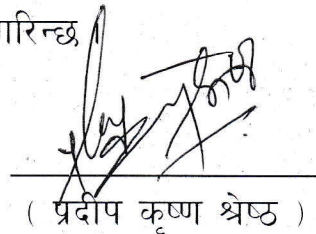 गरिन्छ
( प्रदीप कृष्ण श्रेष्ठ )